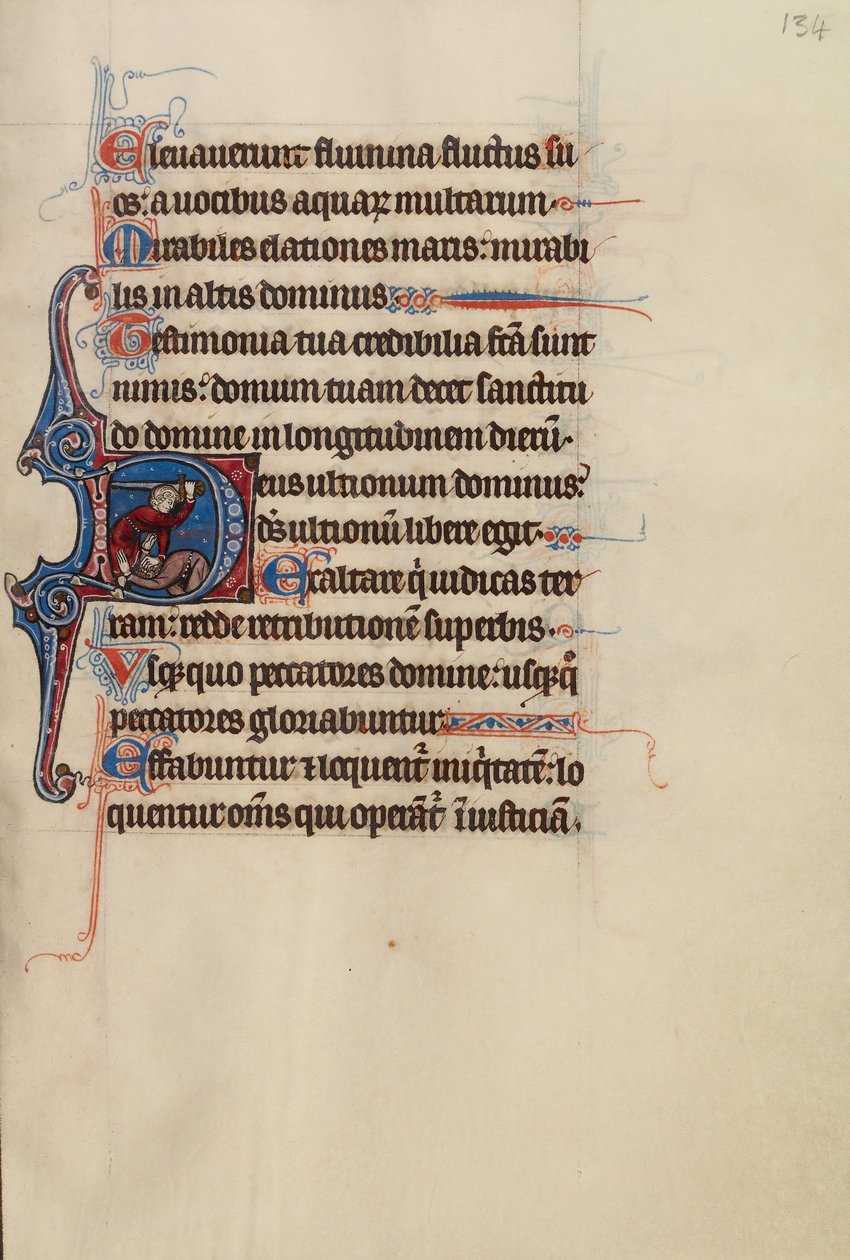 134
Eleuauerunt flumina fluctus su
os: a uocibus aquaꝝ multarum.
Mirabiles elationes maris: mirabi
lis in altis dominus.
Testimonia tua credibilia fc̄a sunt
nimis: domum tuam decet sanctitu
do domine in longitudinem dierū.
Deus ultionum dominus:
ds̄ ultionū libere egit.
Exaltare qͥ iudicas ter
ram: redde retributionē superbis.
Vsqꝫ quo peccatores domine: usqꝫ qͦ
peccatores gloriabuntur
Effabuntur ⁊ loquent᷑ iniqͥtatē: lo
quentur om̄s qui operāt᷑ īiusticiā.